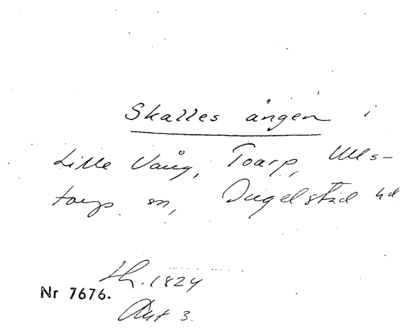 Skalles ängen i
Lille Vång, Toarp, Ulls-
torps sn, Ingelstad hd
Lh. 1824
Nr 7676.
Akt 3.